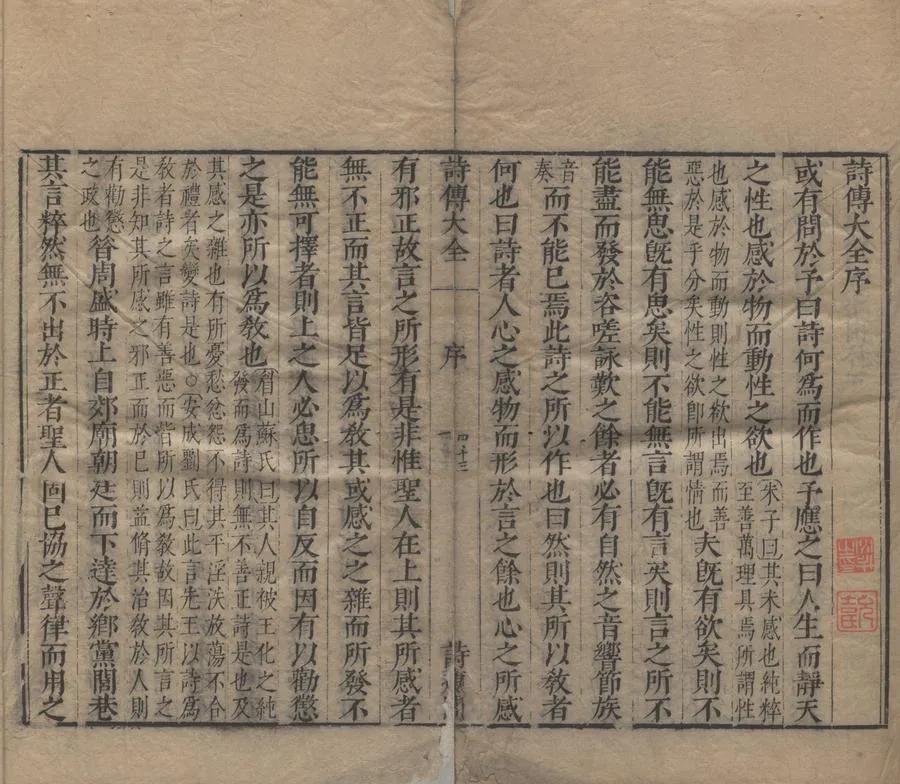 詩傳大全序
或有問於予曰詩何爲而作也予應之曰人生而靜天
之性也感於物而動性之欲也
朱子曰其未感也純粹
至善萬理具焉所謂性
也感於物而動則性之欲出焉而善
惡於是乎分矣性之欲卽所謂情也
夫旣有欲矣則不
能無思旣有思矣則不能無言旣有言矣則言之所不
能盡而發於咨嗟詠歎之餘者必有自然之音響節族
音
奏
而不能已焉此詩之所以作也曰然則其所以敎者
何也曰詩者人心之感物而形於言之餘也心之所感
詩傳大全
序
四十三
一
有邪正故言之所形有是非惟聖人在上則其所感者
無不正而其言皆足以爲敎其或感之之雜而所發不
能無可擇者則上之人必思所以自反而因有以勸懲
之是亦所以爲敎也
眉山蘇氏曰其人親被王化之純
發而爲詩則無不善正詩是也及
其感之雜也有所憂愁忿怨不得其平淫泆放蕩不合
於禮者矣變詩是也○安成劉氏曰此言先王以詩爲
敎者詩之言雖有善惡而皆所以爲敎故因其所言之
是非知其所感之邪正而於已則益脩其治敎於人則
有勸懲
之政也
昔周盛時上自郊廟朝廷而下達於鄉黨閭巷
其言粹然無不出於正者聖人固已協之聲律而用之